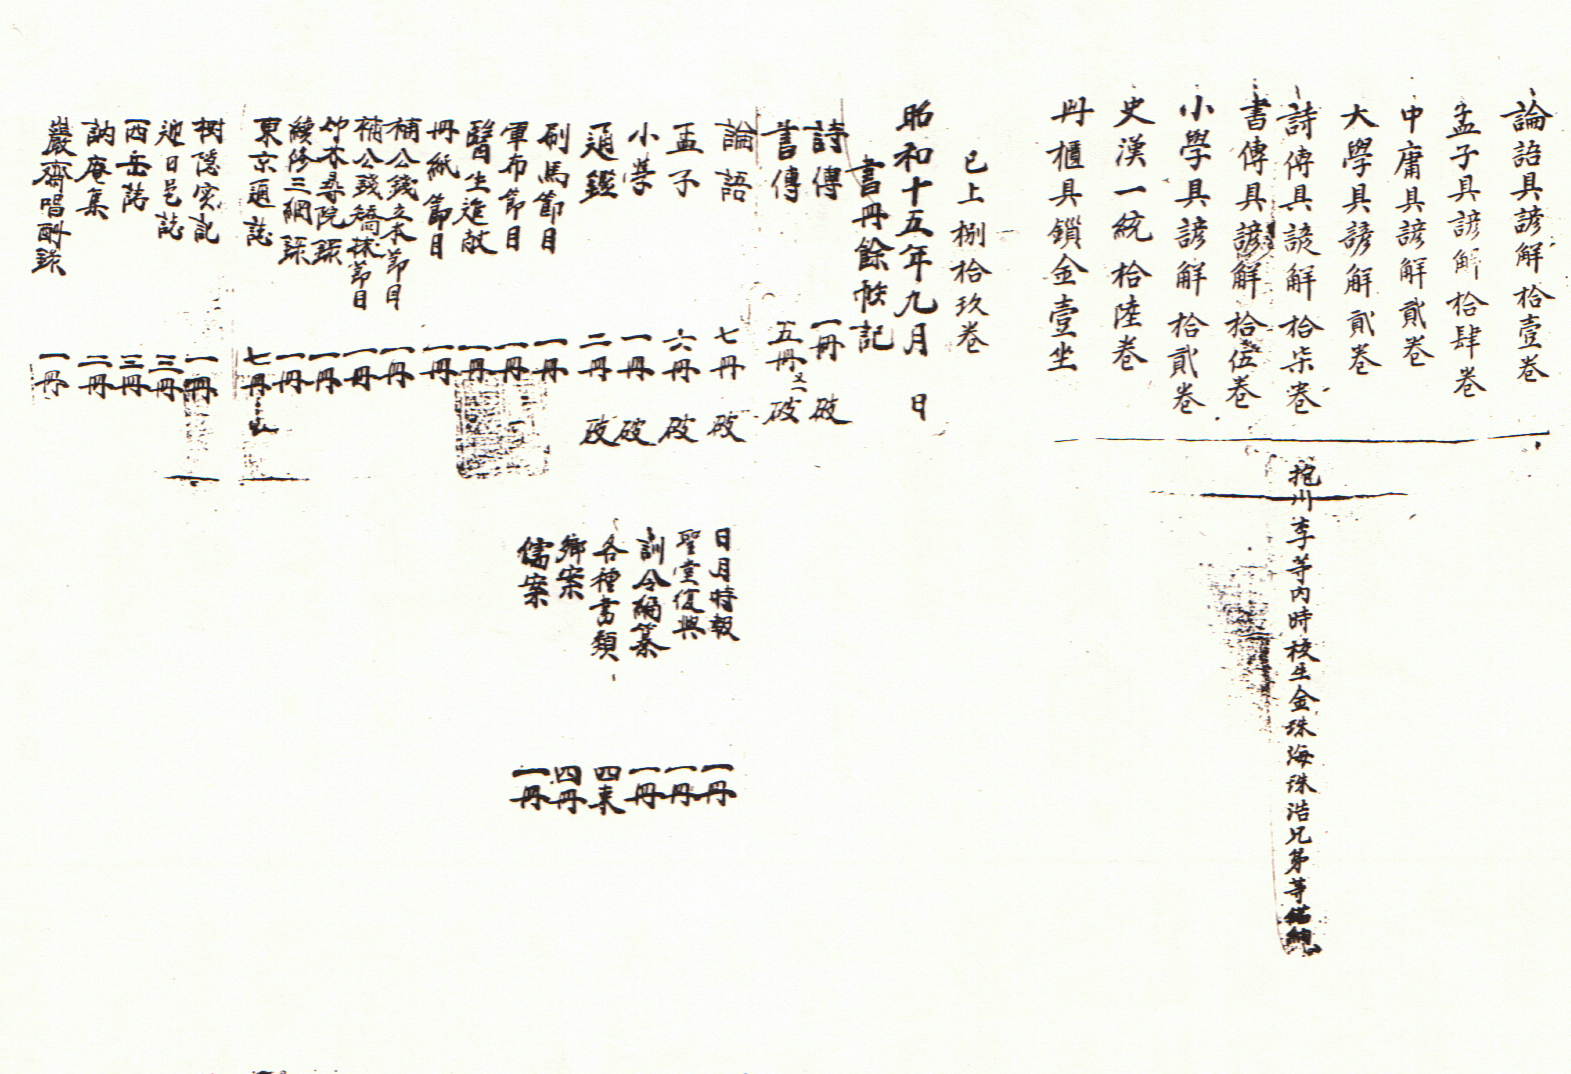 論語具諺解拾壹卷
孟子具諺解拾肆卷
中庸具諺解貳卷
大學具諺解貳卷
詩傳具諺解拾柒卷
書傳具諺解拾伍卷
小學具諺解拾貳卷
史漢一統拾陸卷
冊櫃具鎖金壹坐
抱川李等內時校生金珠海珠浩兄弟等備納
已上捌拾玖卷
昭和十五年九月 日
書冊餘帙記
詩傳 一冊 破
書傳 五冊 又一破
論語 七冊 破
孟子 六冊 破
小學 一冊 破
通鑑 二冊 破
刷馬節目 一冊
軍布節目 一冊
醫生進献 一冊
冊紙節目 一冊
補公錢立本節目 一冊
補公錢矯捄節目 一冊
竹本尋院錄 一冊
續修三綱錄 一冊
東京通誌 七冊
樹隱实記 一冊
迎日邑誌 三冊
西岳誌 三冊
訥庵集 二冊
巖齋唱酬錄 一冊
日月時報 一冊
聖堂復興 一冊
訓令編纂 一冊
各種書類 四束
鄉案 四冊
儒案 一冊